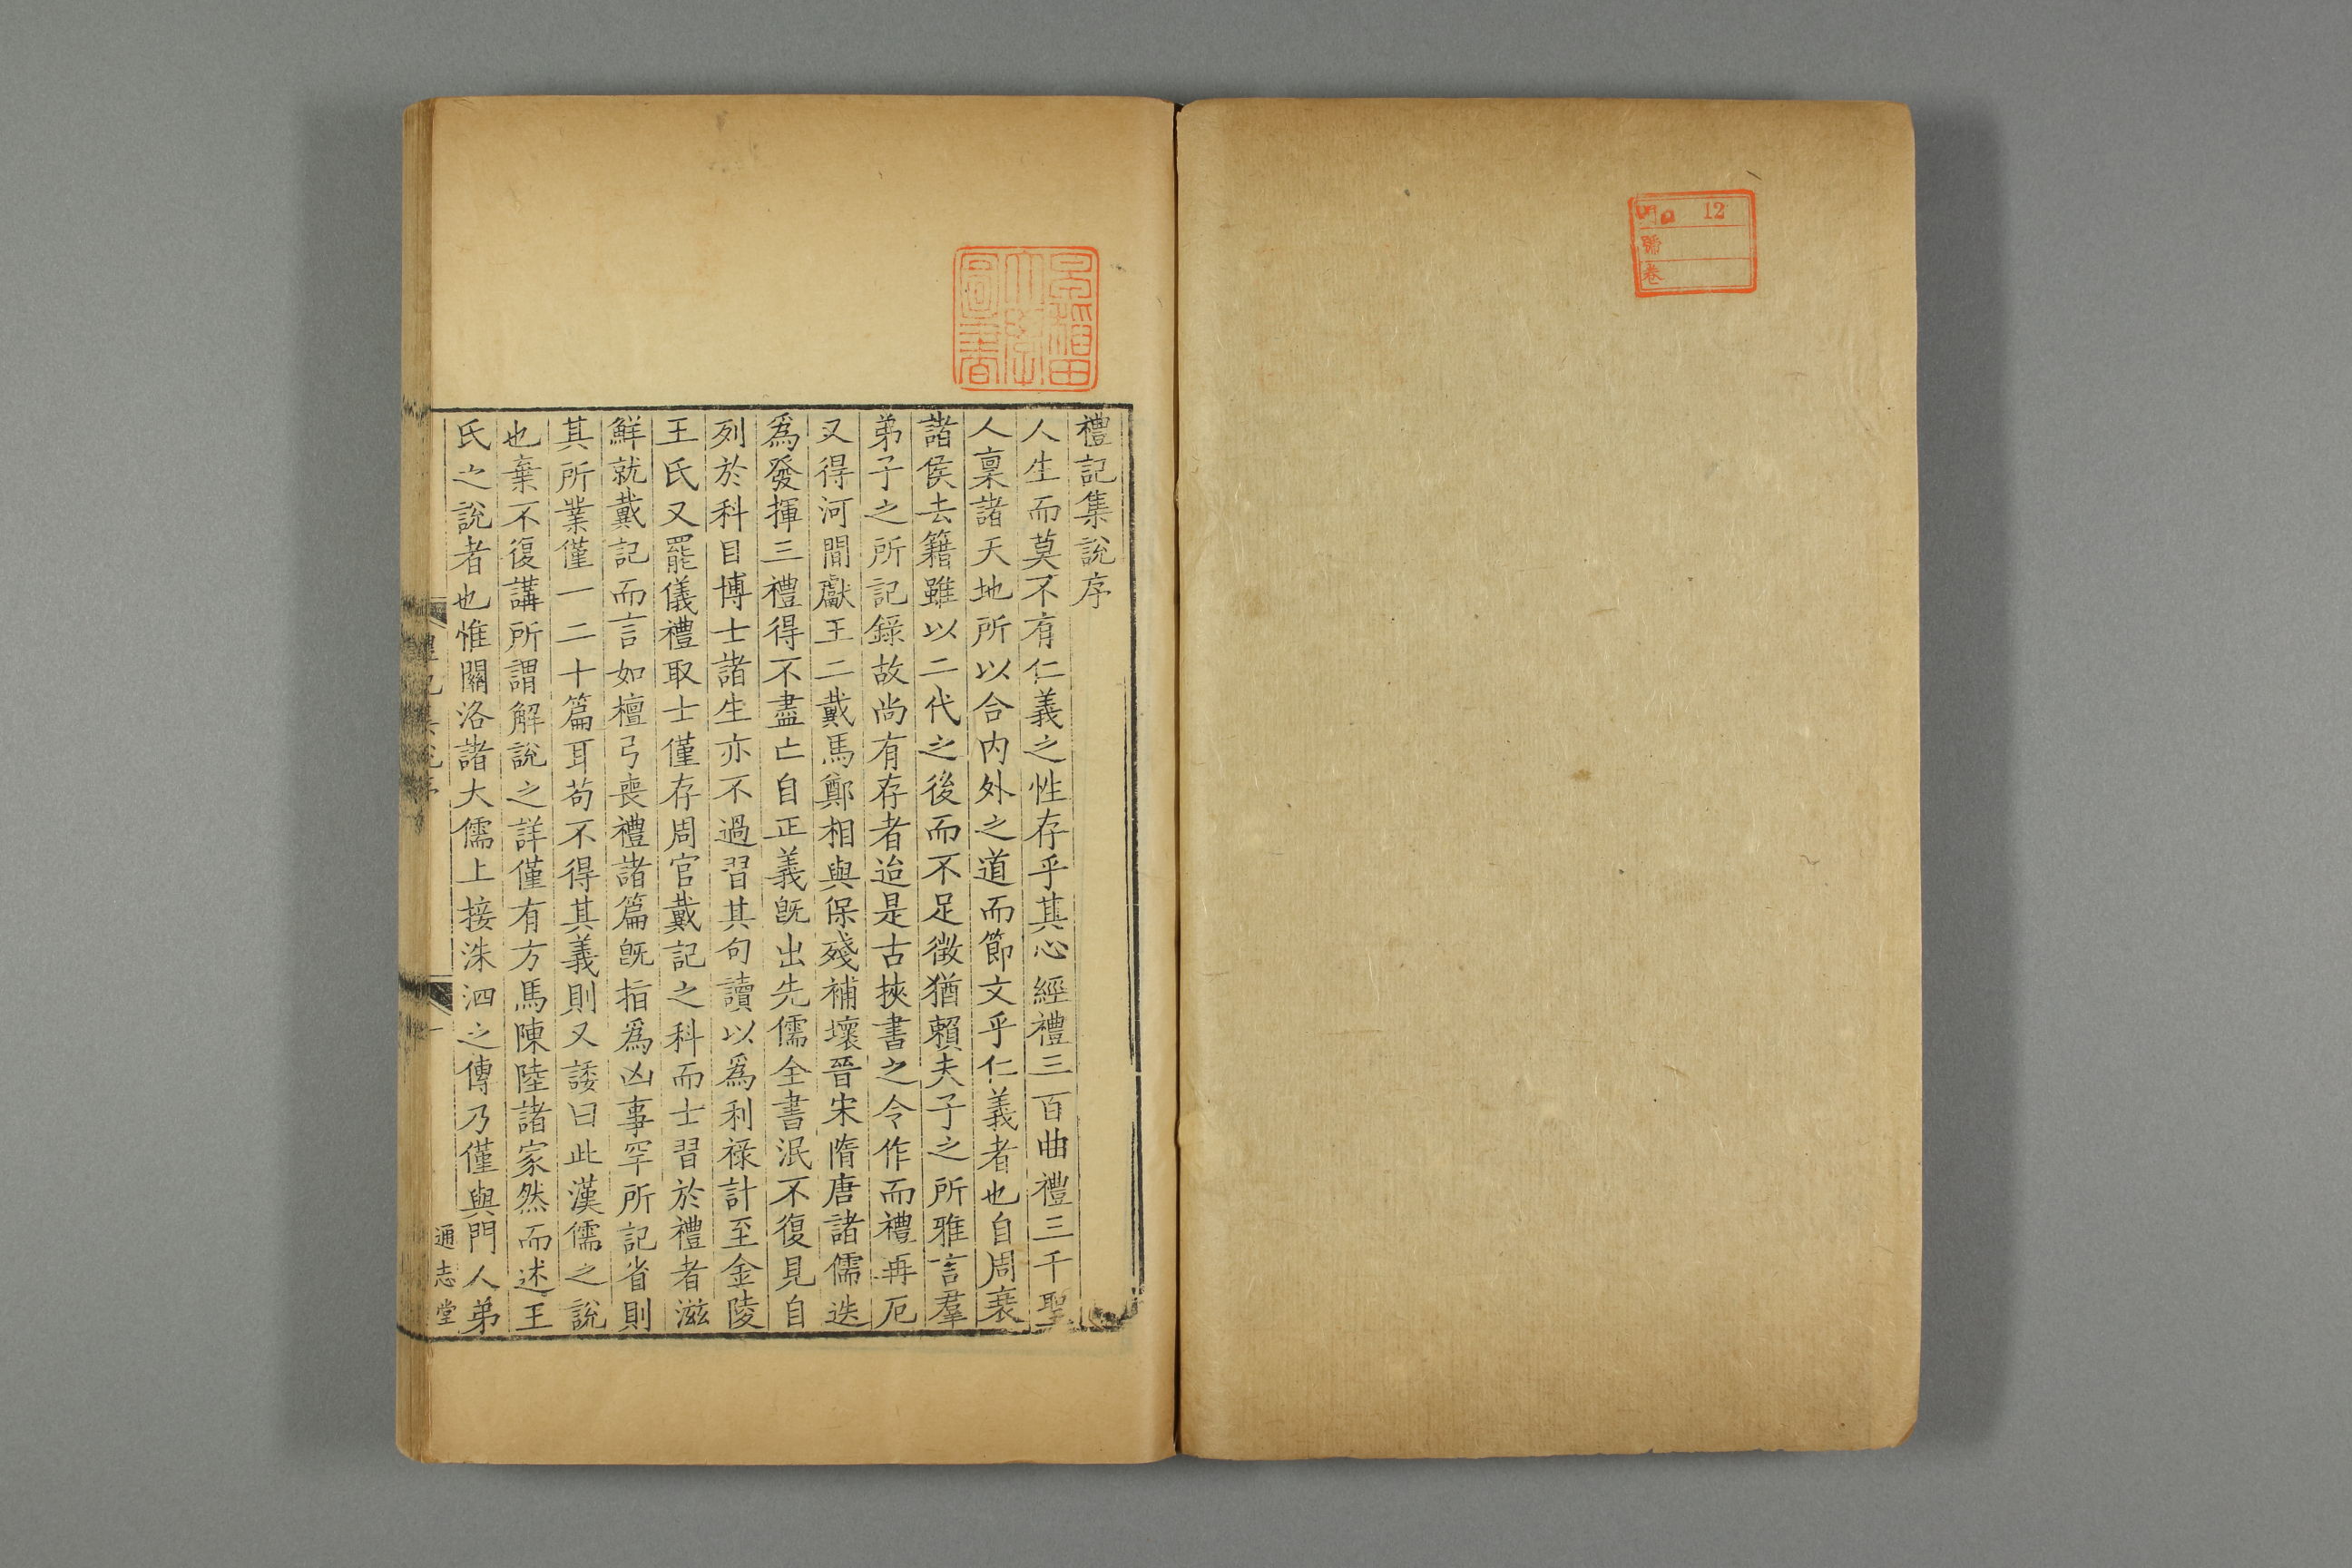 門 12
號
卷
早稲田
大學
圖書
禮記集說序
人生而莫不有仁義之性存乎其心經禮三百曲禮三千聖
人稟諸天地所以合内外之道而節文乎仁義者也自周衰
諸侯去籍雖以二代之後而不足徵猶賴夫子之所雅言羣
弟子之所記錄故尚有存者迨是古挾書之令作而禮再厄
又得河間獻王二戴馬鄭相與保殘補壞晉宋隋唐諸儒迭
爲發揮三禮得不盡亡自正義旣出先儒全書泯不復見自
列於科目博士諸生亦不過習其句讀以爲利祿計至金陵
王氏又罷儀禮取士僅存周官戴記之科而士習於禮者滋
鮮就戴記而言如檀弓喪禮諸篇旣指爲凶事罕所記省則
其所業僅一二十篇耳苟不得其義則又諉曰此漢儒之說
也棄不復講所謂解說之詳僅有方馬陳陸諸家然而述王
氏之說者也惟關洛諸大儒上接洙泗之傳乃僅與門人弟
禮記集說序
一
通志堂